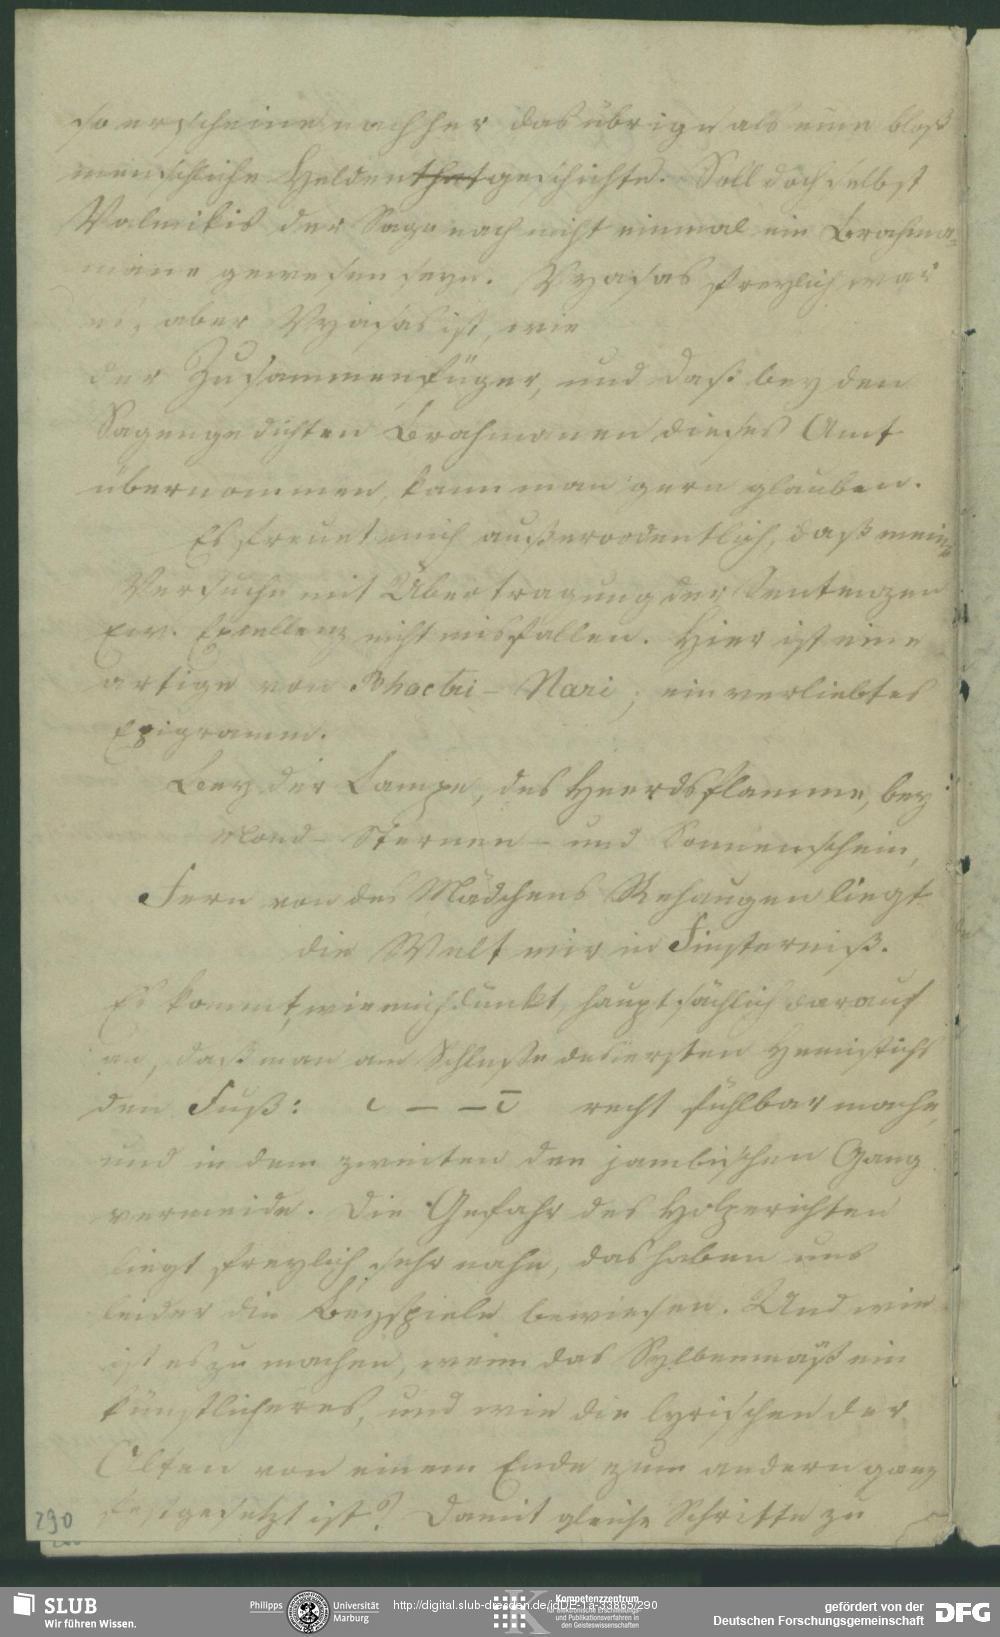 so erscheine nachher das übrige als eine bloß
menschliche Heldenthatgeschichte. Soll doch selbst
Valmikis der Sage nach nicht einmal ein Brahma-
mane gewesen seyn. Vyasas freylich war
es, aber Vyasas ist, wie
der Zusammenfüger, und daß bey den
Sagengedichten Brahmanen dieses Amt
übernommen, kann man gern glauben.
Es freuet mich außerordentlich, daß meine
Versuche mit Übertragung der Sentenzen
Ew. Excellenz nicht misfallen. Hier ist eine
artige von Bhartri-Hari; ein verliebtes
Epigramm.
Bey der Lampe, des Heerds Flamme, bey
Mond- Sternen- und Sonnenschein,
Fern von des Mädchens Rehaugen liegt
die Welt mir in Finsterniß.
Es kommt, wie mich dünkt, hauptsächlich darauf
an, daß man am Schlusse des ersten Hemistichs
den Fuß: ᴗ — — ᴗ̄ recht fühlbar mache,
und in dem zweiten den jambischen Gang
vermeide. Die Gefahr des Holperichten
liegt freylich sehr nahe, das haben uns
leider die Beyspiele bewiesen. Und wie
ist es zu machen, wenn das Sylbenmaß ein
künstlicheres, und wie die lyrischen der
Alten von einem Ende zum andern ganz
festgesetzt ist? Damit gleiche Schritte zu
290
SLUB
Wir führen Wissen.
Philipps Universität Marburg
http://digital.slub-dresden.de/idDE-1a-33865/290
Kompetenzzentrum
für elektronische Erschließungs-
und Publikationsverfahren in
den Geisteswissenschaften
gefördert von der
Deutschen Forschungsgemeinschaft
DFG